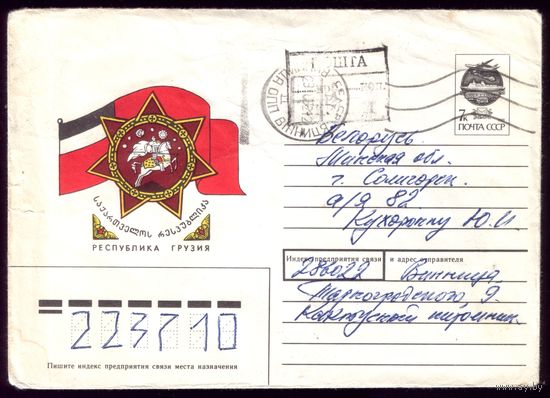 ПОШТА
7к
ПОЧТА СССР
Беларусь
Минская обл.
г. Солигорск.
а/я 82
Кухоронку Ю.И.
საქართველოს რესპუბლიკა
РЕСПУБЛИКА ГРУЗИЯ
Индекс предприятия связи и адрес отправителя
286022 Винница
9
Кактусный питомник.
223710
Пишите индекс предприятия связи места назначения